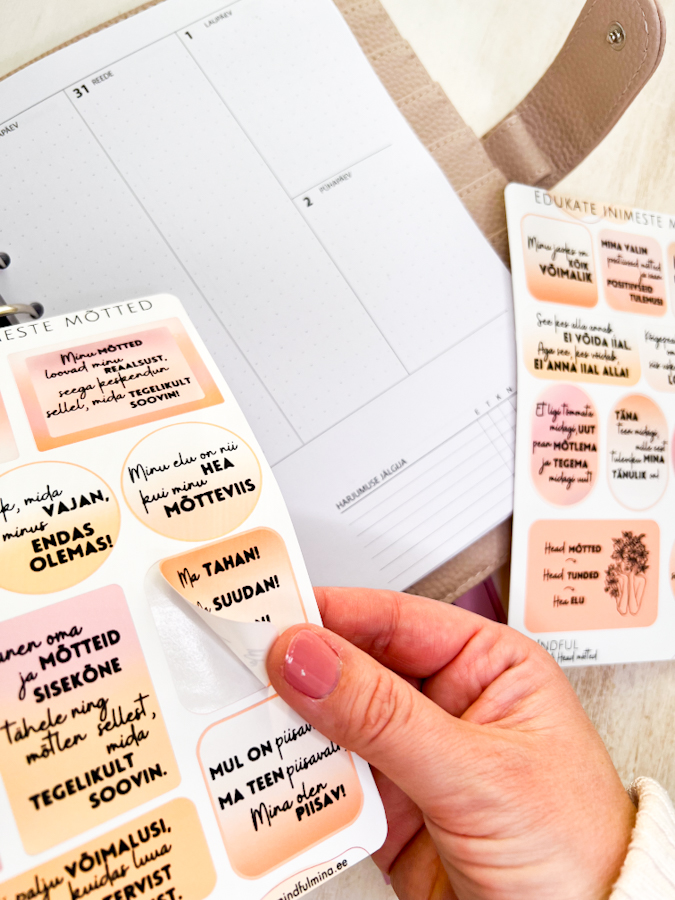 1 LAUPÄEV
31 REEDE
2 PÜHAPÄEV
HARJUMUSE JÄLGIJA
E T K N
MÕTTED
Minu MÕTTED
loovad minu
REAALSUST,
seega keskendun
sellel, mida TEGELIKULT
SOOVIN!
mida
VAJAN,
minus
ENDAS
OLEMAS!
Minu elu on nii
HEA
kui minu
MÕTTEVIIS
Ma TAHAN!
SUUDAN!
oma
ja MÕTTEID
SISEKÕNE
tähele ning
mõtlen sellest,
mida
TEGELIKULT
SOOVIN.
MUL ON piisavalt
MA TEEN piisavalt
Mina olen
PIISAV!
palju VÕIMALUSI,
kuidas luua
mindfulmina.ee
EDUKATE INIMESTE
Minu jaoks on
KÕIK
VÕIMALIK
MINA VALIN
positiivsed mõtted
ja saan
POSITIIVSEID
TULEMUSI
See kes alla annab,
EI VÕIDA IIAL.
Aga see, kes võidab,
EI ANNA IIAL ALLA!
Et liigi tõmmata
midagi UUT
pean MÕTLEMA
ja TEGEMA
midagi uut!
TÄNA
teen midagi,
mille eest
tuleviku MINA
TÄNULIK on!
Head MÕTTED
Head TUNDED
Hea ELU
Head mõtted